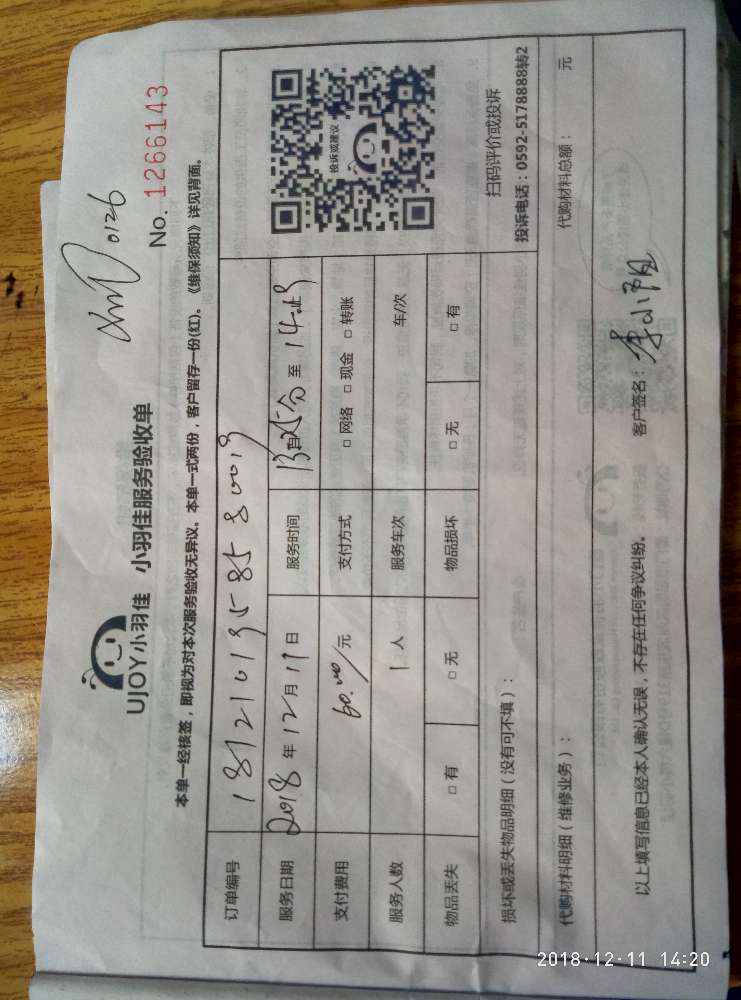 0126
No. 1266143
UJOY小羽佳 小羽佳服务验收单
本单一经核签，即视为对本次服务验收无异议。本单一式两份，客户留存一份(红)。《维保须知》详见背面。
订单编号
服务日期 2018 年 12 月 11 日 服务时间 至
支付费用 60.00/元 支付方式 □ 网络 □ 现金 □ 转账
服务人数 1 人 服务车次 车/次
物品丢失 □ 有 □ 无 物品损坏 □ 无 □ 有
投诉或建议
扫码评价或投诉
投诉电话：0592-5178888转2
损坏或丢失物品明细（没有可不填）：
代购材料明细（维修业务）： 代购材料总额： 元
以上填写信息已经本人确认无误，不存在任何争议纠纷。 客户签名：李小阳
2018-12-11 14:20